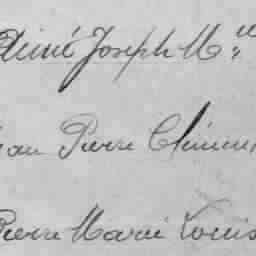 Aimé Joseph M
Jean Pierre Clémen
Pierre Marie Louis